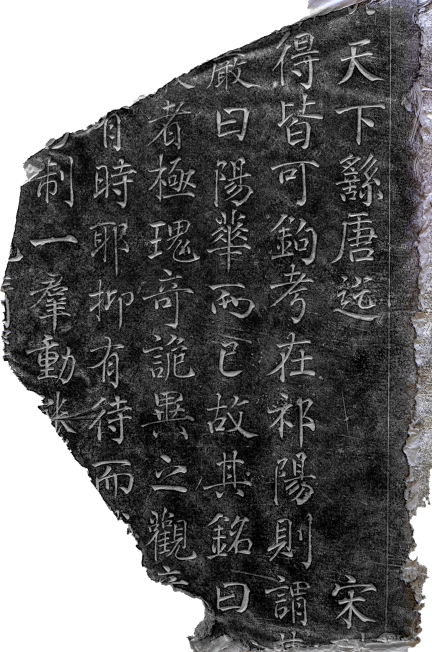 天下繇唐宋
得皆可鉤考在祁陽則謂
巖曰陽華而已故其銘曰
者極瑰奇詭異之觀
有時耶抑有待而
制一羣動